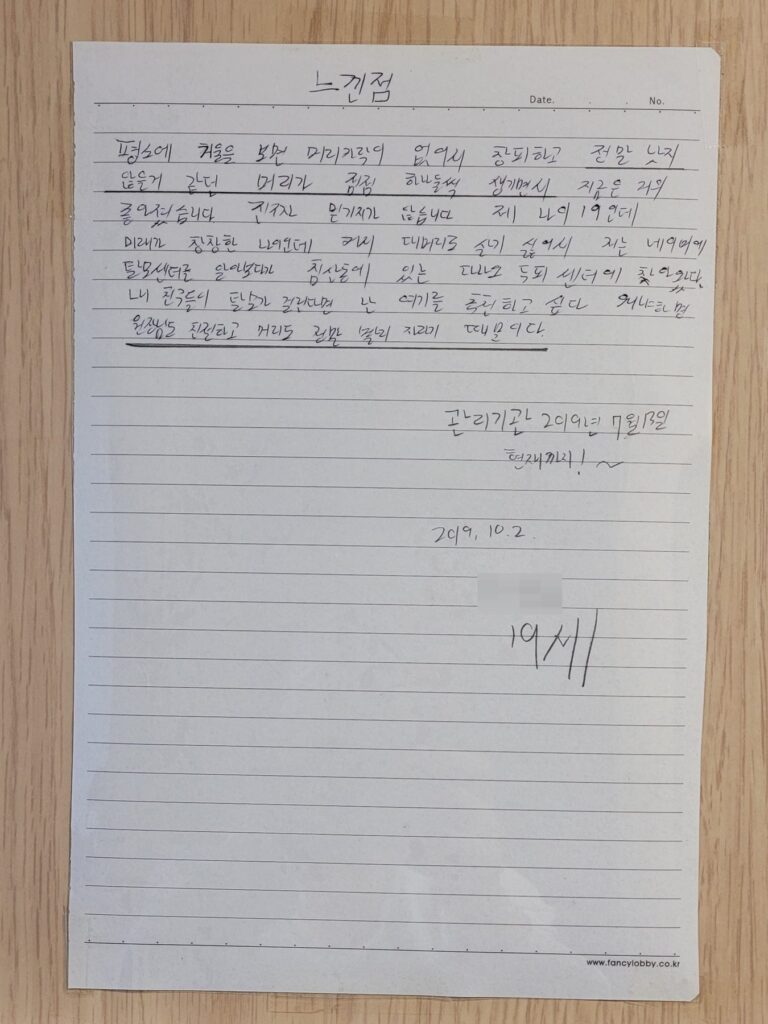 느낀점
Date. No.
평소에 거울을 보면 머리카락이 없어서 창피하고 정말 낫지
않을거 같던 머리가 점점 하나둘씩 생기면서 지금은 거의
좋아졌습니다 진짜 믿기지가 않습니다 제 나이 19인데
미래가 창창한 나이인데 커서 대머리로 살기 싫어서 저는 네이버에
탈모센터를 알아보다가 침산동에 있는 두피 센터에 찾아왔다.
내 친구들이 탈모가 걸린다면 난 여기를 추천하고 싶다 왜냐하면
원장님도 친절하고 머리도 정말 빨리 자라기 때문이다.
관리기관 2019년 7월 13일
현재까지! ~
2019. 10. 2.
19세
www.fancylobby.co.kr